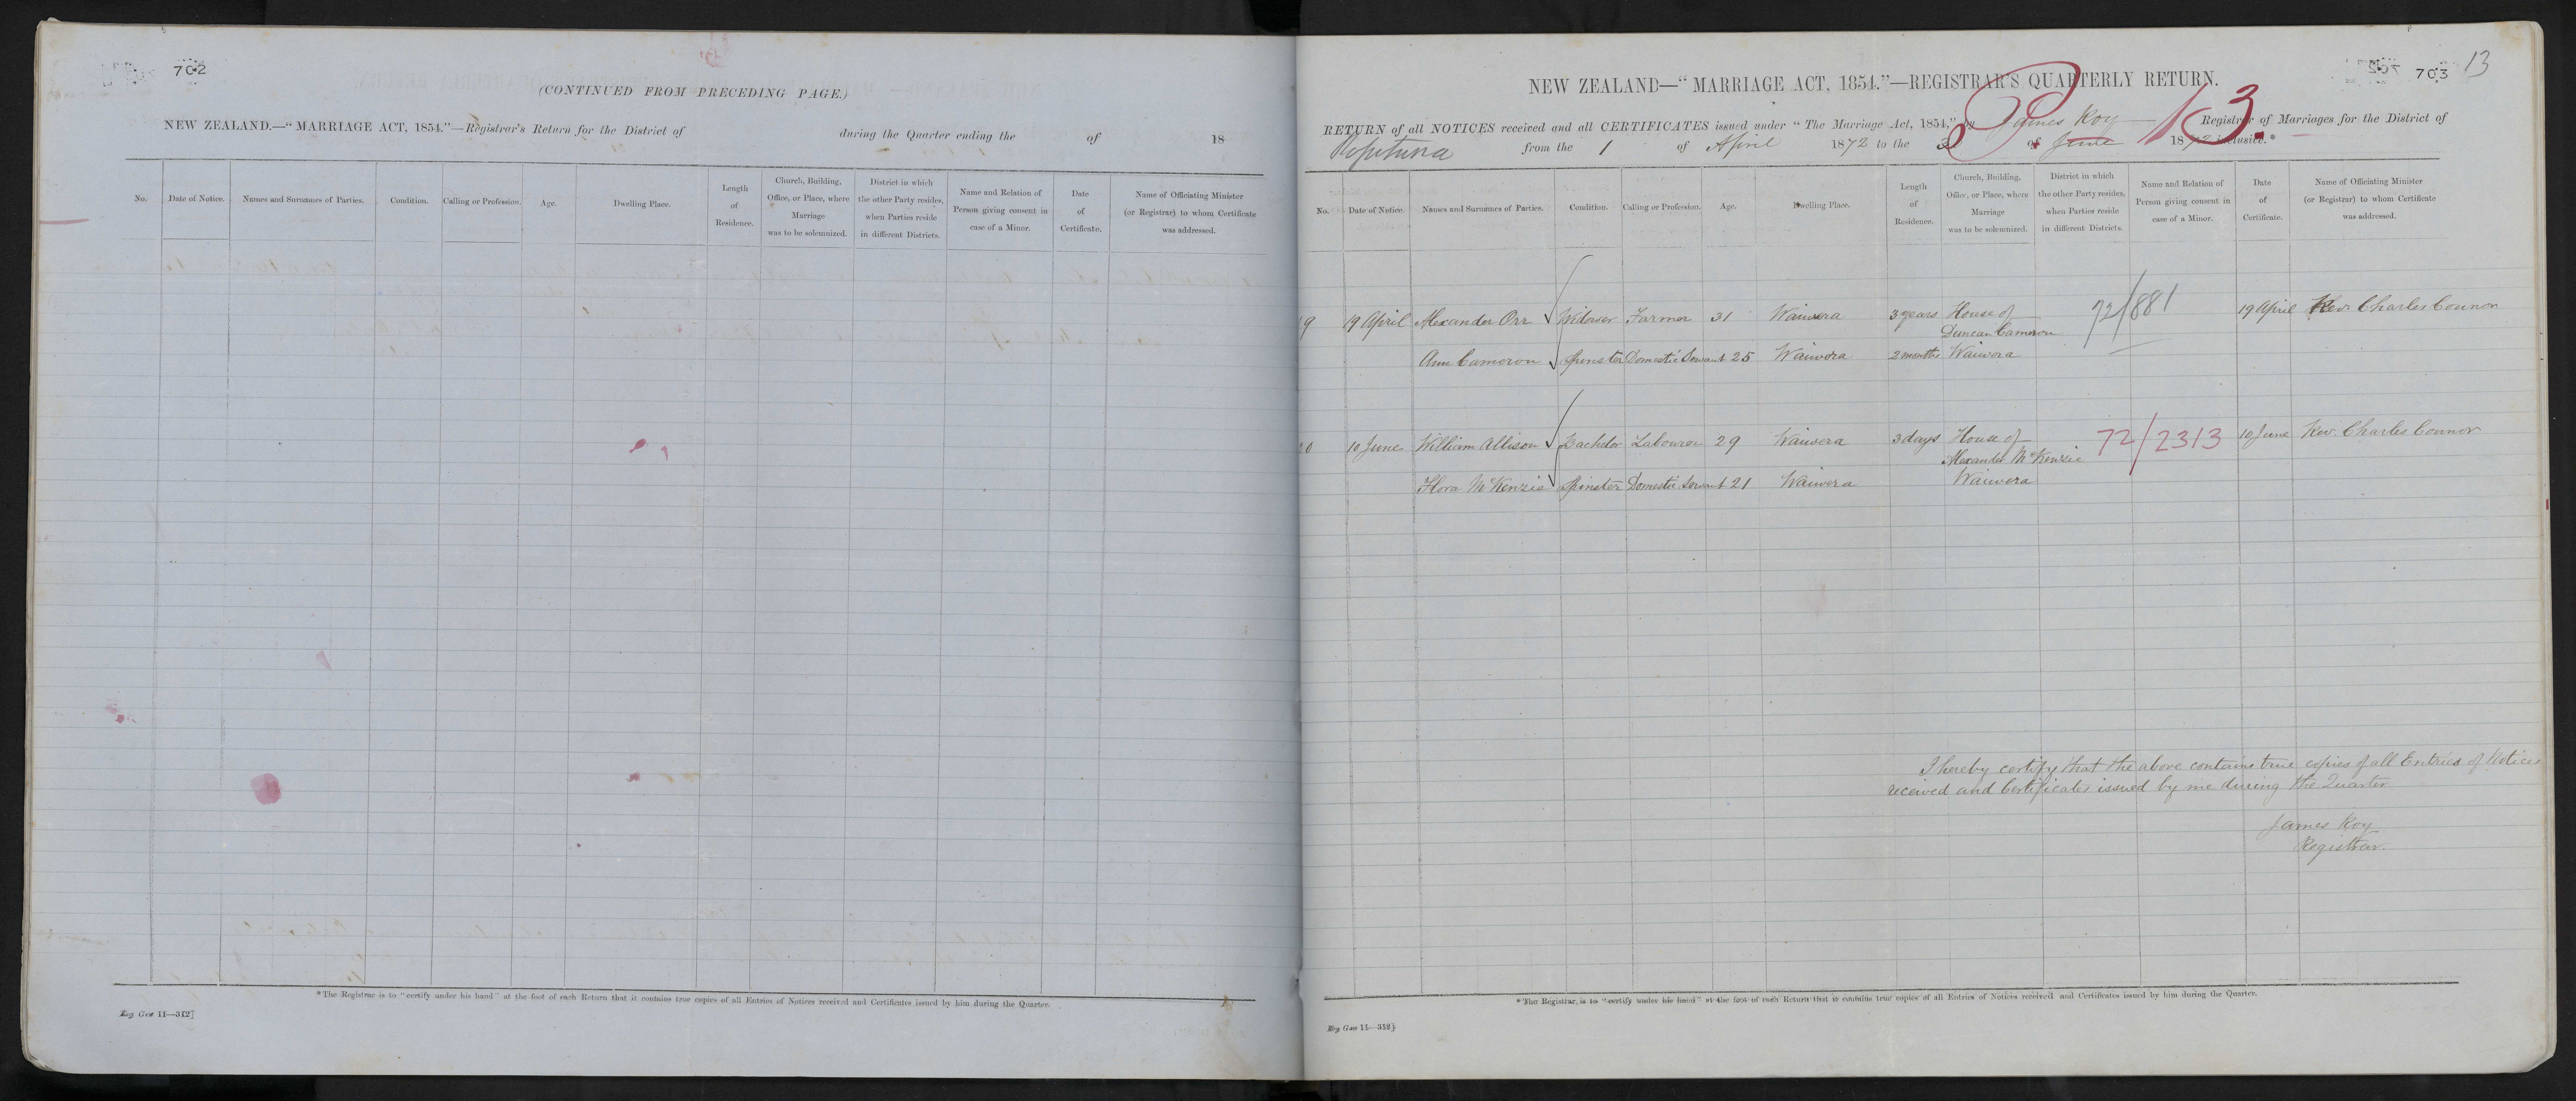 702
(CONTINUED FROM PRECEDING PAGE.)
NEW ZEALAND.—"MARRIAGE ACT, 1854."—Registrar's Return for the District of during the Quarter ending the of 18
No. Date of Notice. Names and Surnames of Parties. Condition. Calling or Profession. Age. Dwelling Place. Length of Residence. Church, Building, Office, or Place, where Marriage was to be solemnized. District in which the other Party resides, when Parties reside in different Districts. Name and Relation of Person giving consent in case of a Minor. Date of Certificate. Name of Officiating Minister (or Registrar) to whom Certificate was addressed.
*The Registrar is to "certify under his hand" at the foot of each Return that it contains true copies of all Entries of Notices received and Certificates issued by him during the Quarter.
Reg Gen 11—312]
703 13
NEW ZEALAND—"MARRIAGE ACT, 1854."—REGISTRAR'S QUARTERLY RETURN.
RETURN of all NOTICES received and all CERTIFICATES issued under "The Marriage Act, 1854," by James Roy Registrar of Marriages for the District of
from the 1 of April 1872 to the of June 1872 inclusive.*
No. Date of Notice. Names and Surnames of Parties. Condition. Calling or Profession. Age. Dwelling Place. Length of Residence. Church, Building, Office, or Place, where Marriage was to be solemnized. District in which the other Party resides, when Parties reside in different Districts. Name and Relation of Person giving consent in case of a Minor. Date of Certificate. Name of Officiating Minister (or Registrar) to whom Certificate was addressed.
19 19 April Alexander Orr Widower Farmer 31 Waiwera 3 years House of 72/881 19 April Rev. Charles Connor
Duncan Cameron
Ann Cameron Spinster Domestic Servant 25 Waiwera 2 months Waiwera
20 10 June William Allison Bachelor Labourer 29 Waiwera 3 days House of 72/2313 10 June Rev. Charles Connor
Alexander McKenzie
Flora McKenzie Spinster Domestic Servant 21 Waiwera Waiwera
I hereby certify that the above contains true copies of all Entries of Notices
received and Certificates issued by me during the Quarter
James Roy
Registrar.
*The Registrar is to "certify under his hand" at the foot of each Return that it contains true copies of all Entries of Notices received and Certificates issued by him during the Quarter.
Reg Gen 11—312]